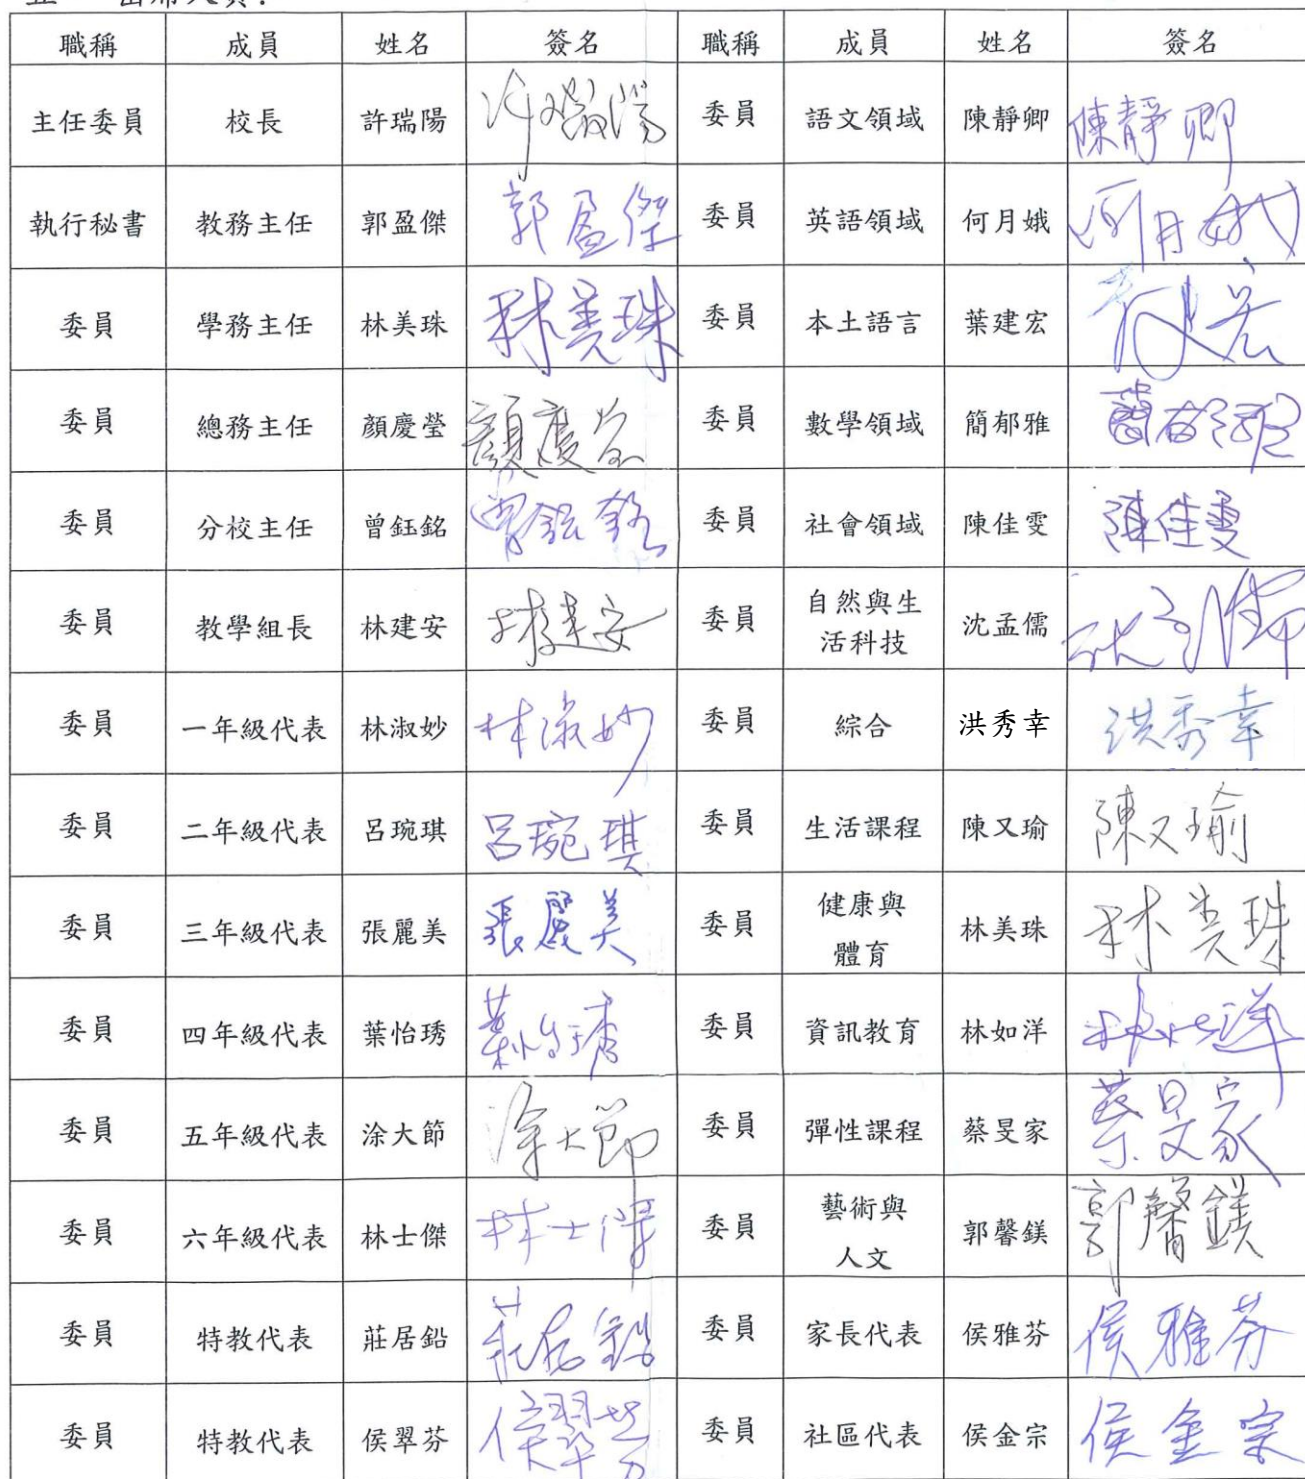 職稱 成員 姓名 簽名 職稱 成員 姓名 簽名
主任委員 校長 許瑞陽 許瑞陽 委員 語文領域 陳靜卿 陳靜卿
執行秘書 教務主任 郭盈傑 郭盈傑 委員 英語領域 何月娥 何月娥
委員 學務主任 林美珠 林美珠 委員 本土語言 葉建宏
委員 總務主任 顏慶瑩 顏慶瑩 委員 數學領域 簡郁雅 簡郁雅
委員 分校主任 曾鈺銘 曾鈺銘 委員 社會領域 陳佳雯 陳佳雯
委員 教學組長 林建安 林建安 委員 自然與生
活科技 沈孟儒 沈孟儒
委員 一年級代表 林淑妙 林淑妙 委員 綜合 洪秀幸 洪秀幸
委員 二年級代表 呂琬琪 呂琬琪 委員 生活課程 陳又瑜 陳又瑜
委員 三年級代表 張麗美 張麗美 委員 健康與
體育 林美珠 林美珠
委員 四年級代表 葉怡琇 葉怡琇 委員 資訊教育 林如洋 林如洋
委員 五年級代表 涂大節 涂大節 委員 彈性課程 蔡旻家 蔡旻家
委員 六年級代表 林士傑 林士傑 委員 藝術與
人文 郭馨鎂 郭馨鎂
委員 特教代表 莊居鉛 莊居鉛 委員 家長代表 侯雅芬 侯雅芬
委員 特教代表 侯翠芬 侯翠芬 委員 社區代表 侯金宗 侯金宗